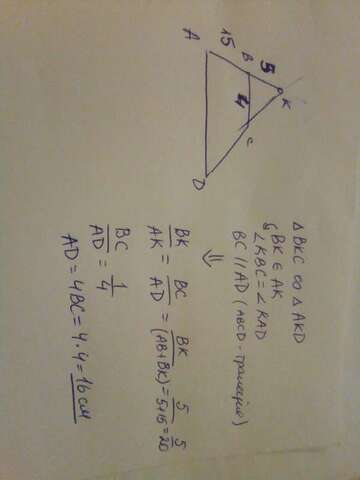 K
5
B
4
C
15
A
D
△ BKC ∞ △ AKD
BK ∈ AK
∠KBC = ∠KAD
BC // AD (ABCD - трапеция)
⇓
BK/AK = BC/AD = BK/(AB+BK) = 5/5+15 = 5/20
BC/AD = 1/4
AD = 4BC = 4·4 = 16 см